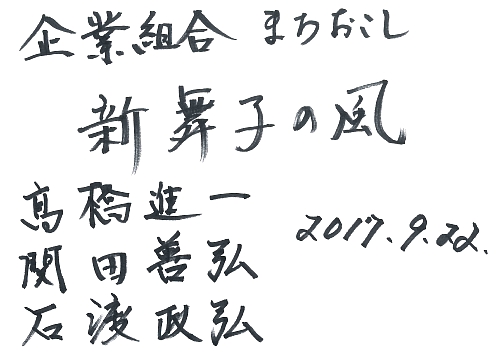 企業組合 まちおこし
新舞子の風
髙橋進一
関田善弘
石渡政弘
2017.9.22.